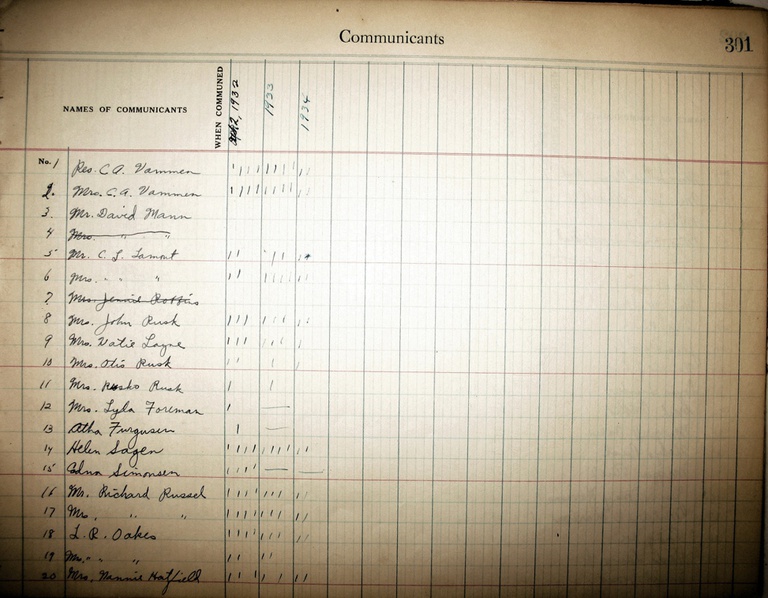 Communicants
301
NAMES OF COMMUNICANTS
WHEN COMMUNED
1932
1933
1934
No. 1 Rev. C. A. Vammen
2. Mrs. C. A. Vammen
3. Mr. David Mann
4 Mrs. " "
5 Mr. C. L. Lamont
6 Mrs. " " "
7 Mrs. Jennie Robbins
8 Mrs. John Rusk
9 Mrs. Layne
10 Mrs. Otis Rusk
11 Mrs. Rusk
12 Mrs. Lyla Foreman
13 Atha Furguson
14 Helen Sagen
15 Edna Simonsen
16 Mr. Richard Russel
17 Mrs. " "
18 L. R. Oakes
19 Mrs. " "
20 Mrs. Nannie Hatfield